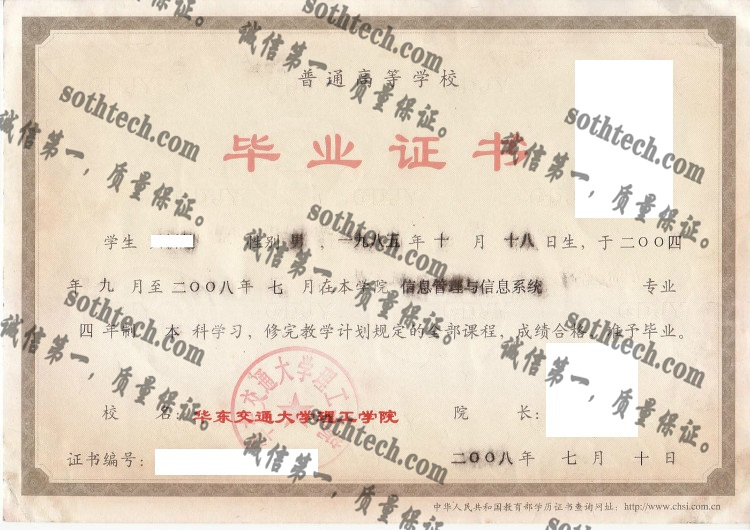 普通高等学校
毕业证书
学生 性别 男 ，一九八五年 十 月 十八 日生，于二〇〇四
年 九 月至 二〇〇八 年 七 月在本学院 信息管理与信息系统 专业
四 年制 本 科学习，修完教学计划规定的全部课程，成绩合格，准予毕业。
校 名：华东交通大学理工学院 院 长：
证书编号： 二〇〇八 年 七 月 十 日
中华人民共和国教育部学历证书查询网址：http://www.chsi.com.cn
交通大学理工
sothtech.com
诚信第一，质量保证。
sothtech.com
诚信第一，质量保证。
sothtech.com
诚信第一，质量保证。
sothtech.com
诚信第一，质量保证。
sothtech.com
诚信第一，质量保证。
sothtech.com
诚信第一，质量保证。
sothtech.com
诚信第一，质量保证。
诚信第一，质量保证。